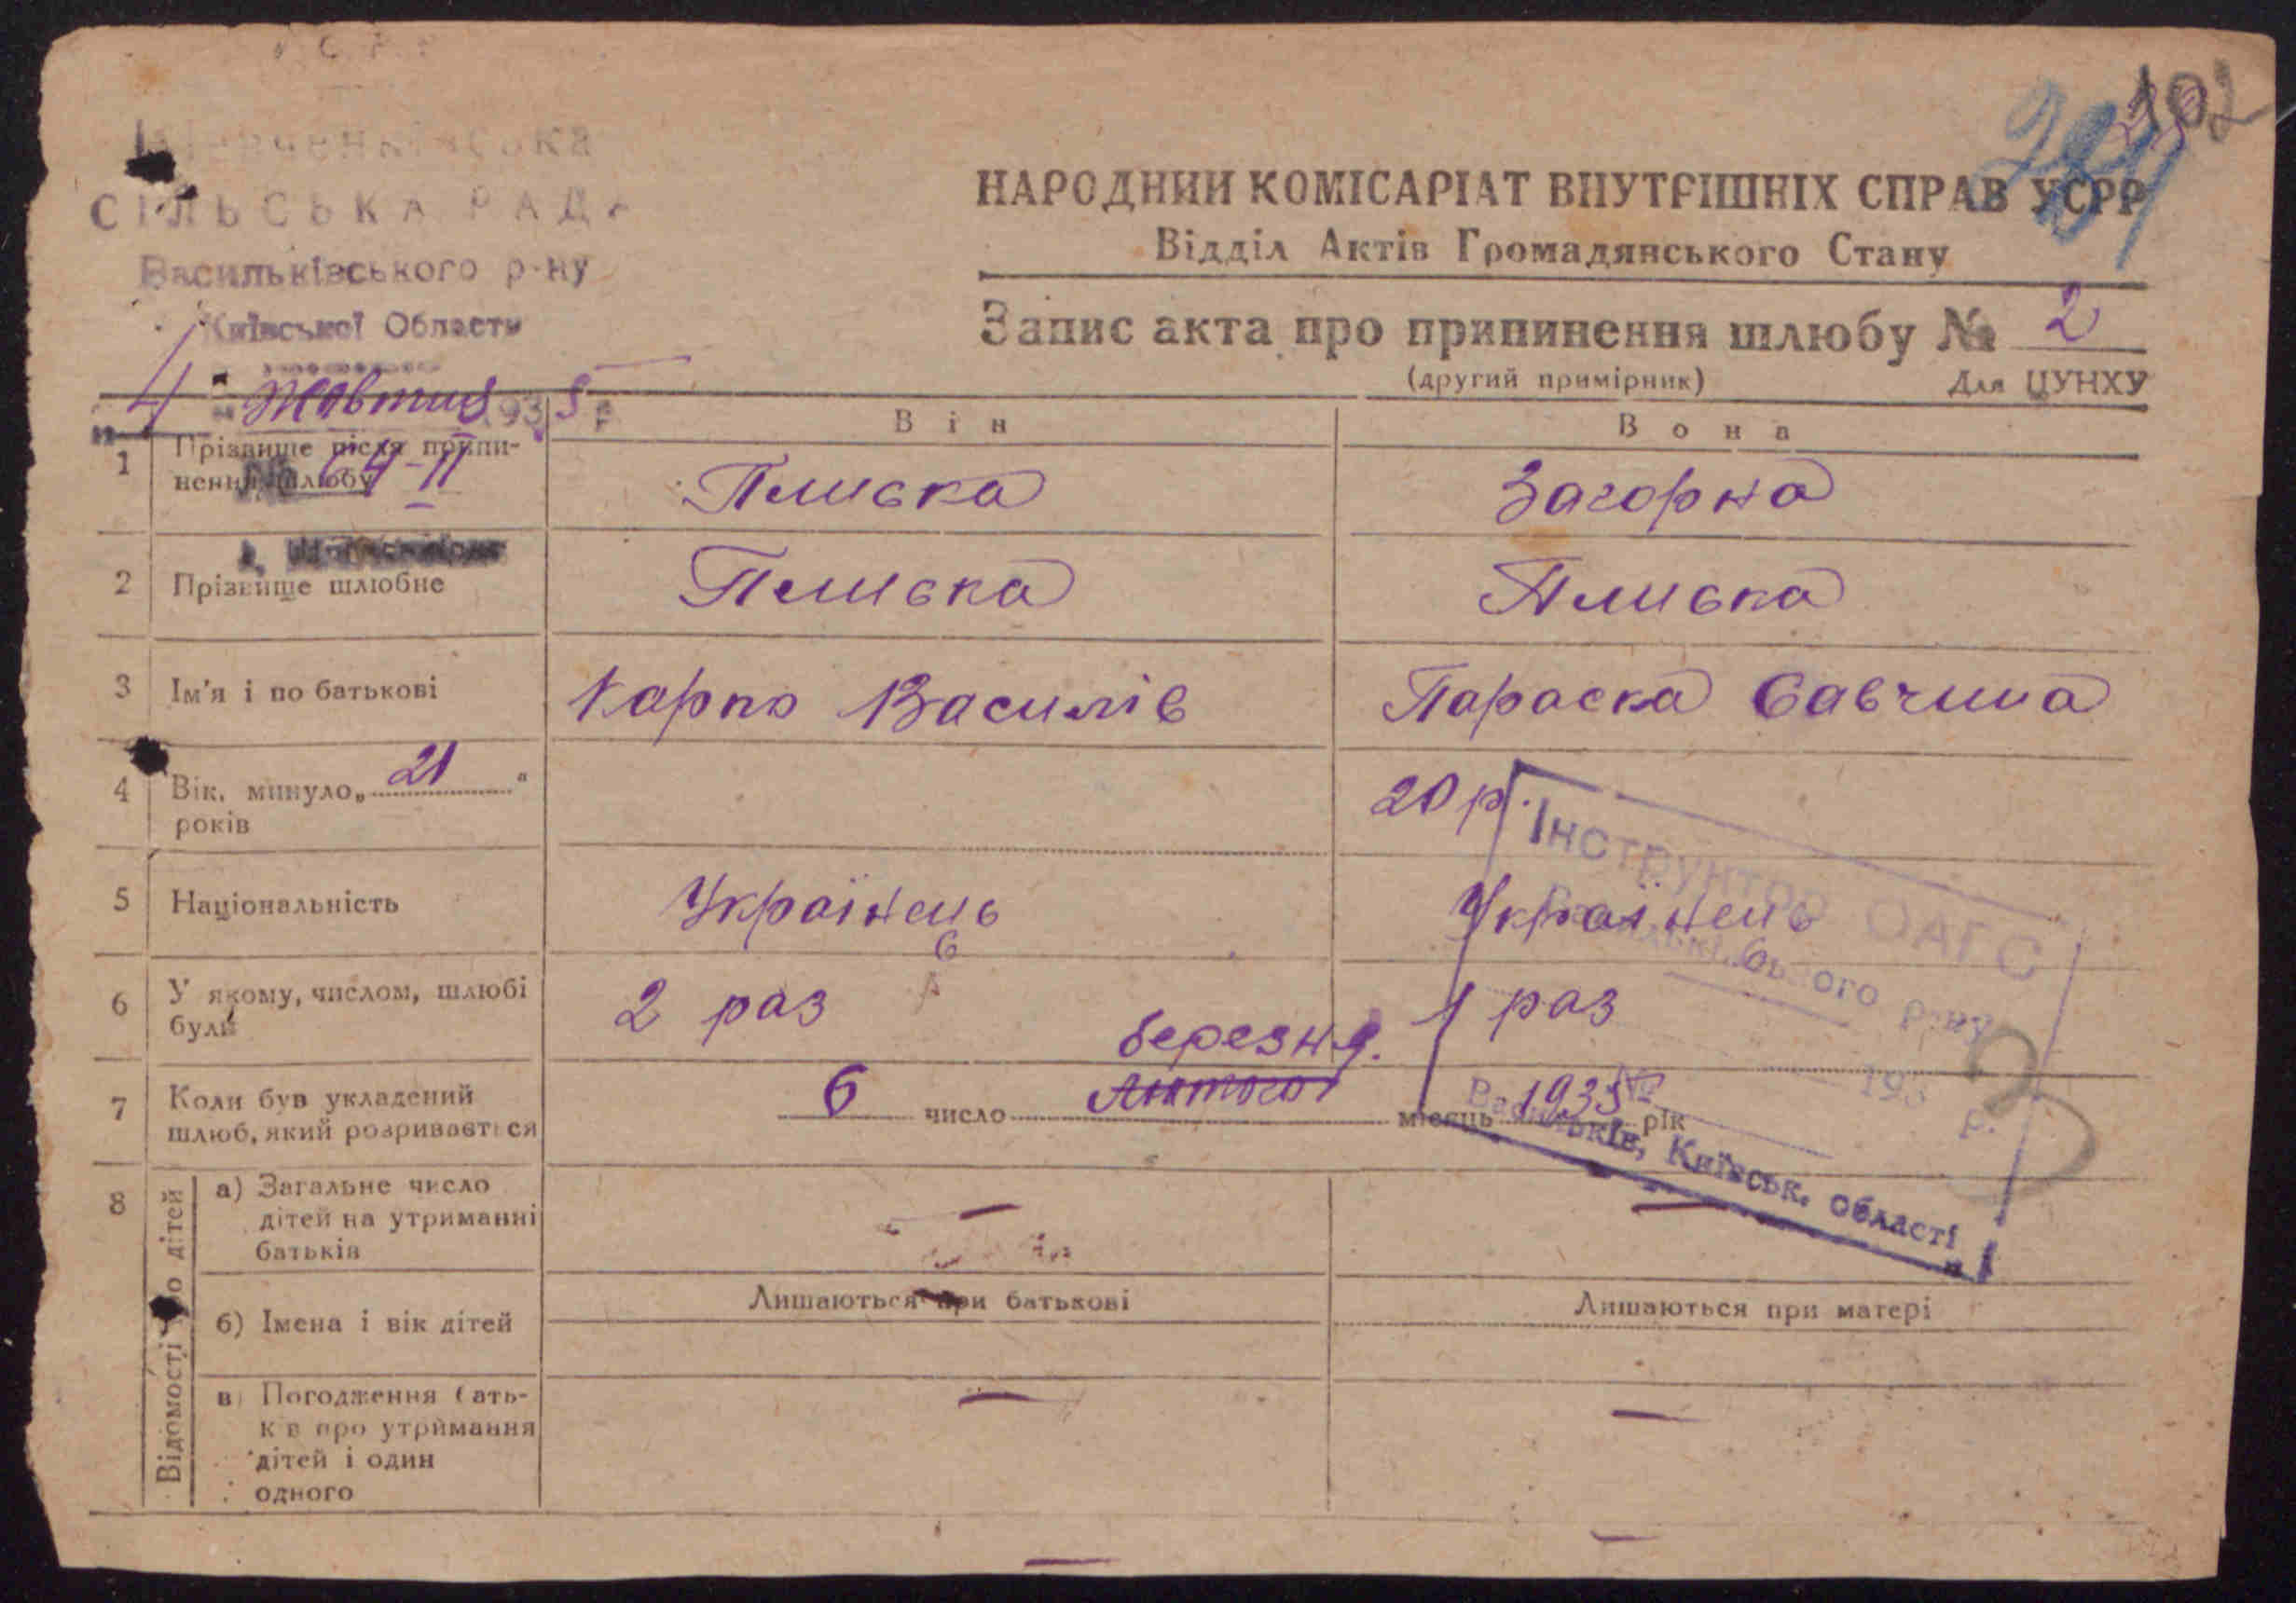 УСРР
Шевченківська
СІЛЬСЬКА РАДА
Васильківського р-ну
Київської Области
4 Жовтня 1935 р
№ 64-II
НАРОДНИЙ КОМІСАРІАТ ВНУТРІШНІХ СПРАВ УСРР
Відділ Актів Громадянського Стану
Запис акта про припинення шлюбу № 2
(другий примірник) Для ЦУНХУ
Він Вона
1 Прізвище після припинення шлюбу Плиська Загорна
2 Прізвище шлюбне Плиська Плиська
3 Ім'я і по батькові Карпо Василів Параска Савчина
4 Вік, минуло „21“ років 20 р.
5 Національність Українець Українець
6 У якому, числом, шлюбі були 2 раз 1 раз
березня
7 Коли був укладений шлюб, який розривається 6 число лютого місяць 1935 рік
Інструктор ОАГС
Васильківського р-ну
№
193 р.
Васильків, Київськ. області
3
8 Відомості про дітей
а) Загальне число дітей на утриманні батьків — —
б) Імена і вік дітей Лишаються при батькові Лишаються при матері
в) Погодження батьків про утримання дітей і один одного — —